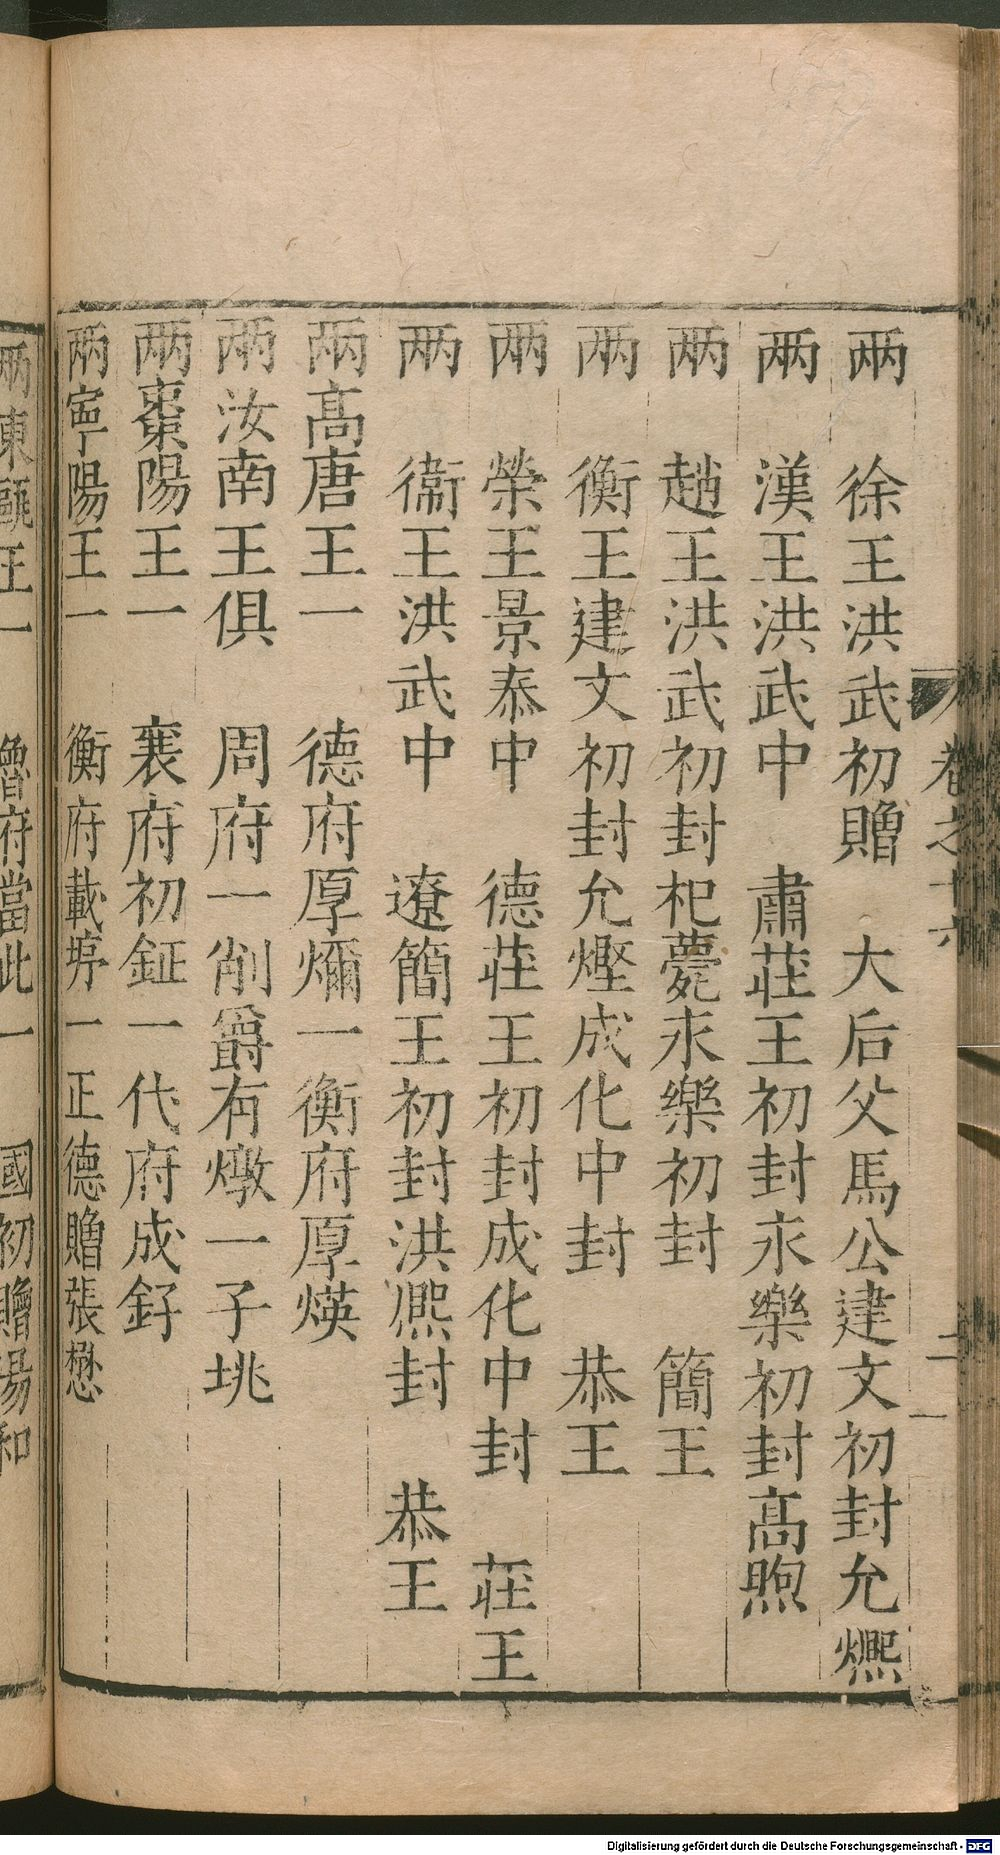 卷之十六
二
兩 徐王洪武初贈 大后父馬公建文初封允熈
兩 漢王洪武中 肅莊王初封永樂初封高煦
兩 趙王洪武初封杞薨永樂初封 簡王
兩 衡王建文初封允熞成化中封 恭王
兩 榮王景泰中 德莊王初封成化中封 莊王
兩 衞王洪武中 遼簡王初封洪熈封 恭王
兩高唐王一 德府厚㸄一衡府厚煐
兩汝南王俱 周府一削爵有爋一子㘨
兩棗陽王一 襄府初鉦一代府成釨
兩寧陽王一 衡府載㙐一正德贈張懋
兩東甌王一 魯府當沘一 國初贈湯和
Digitalisierung gefördert durch die Deutsche Forschungsgemeinschaft - DFG